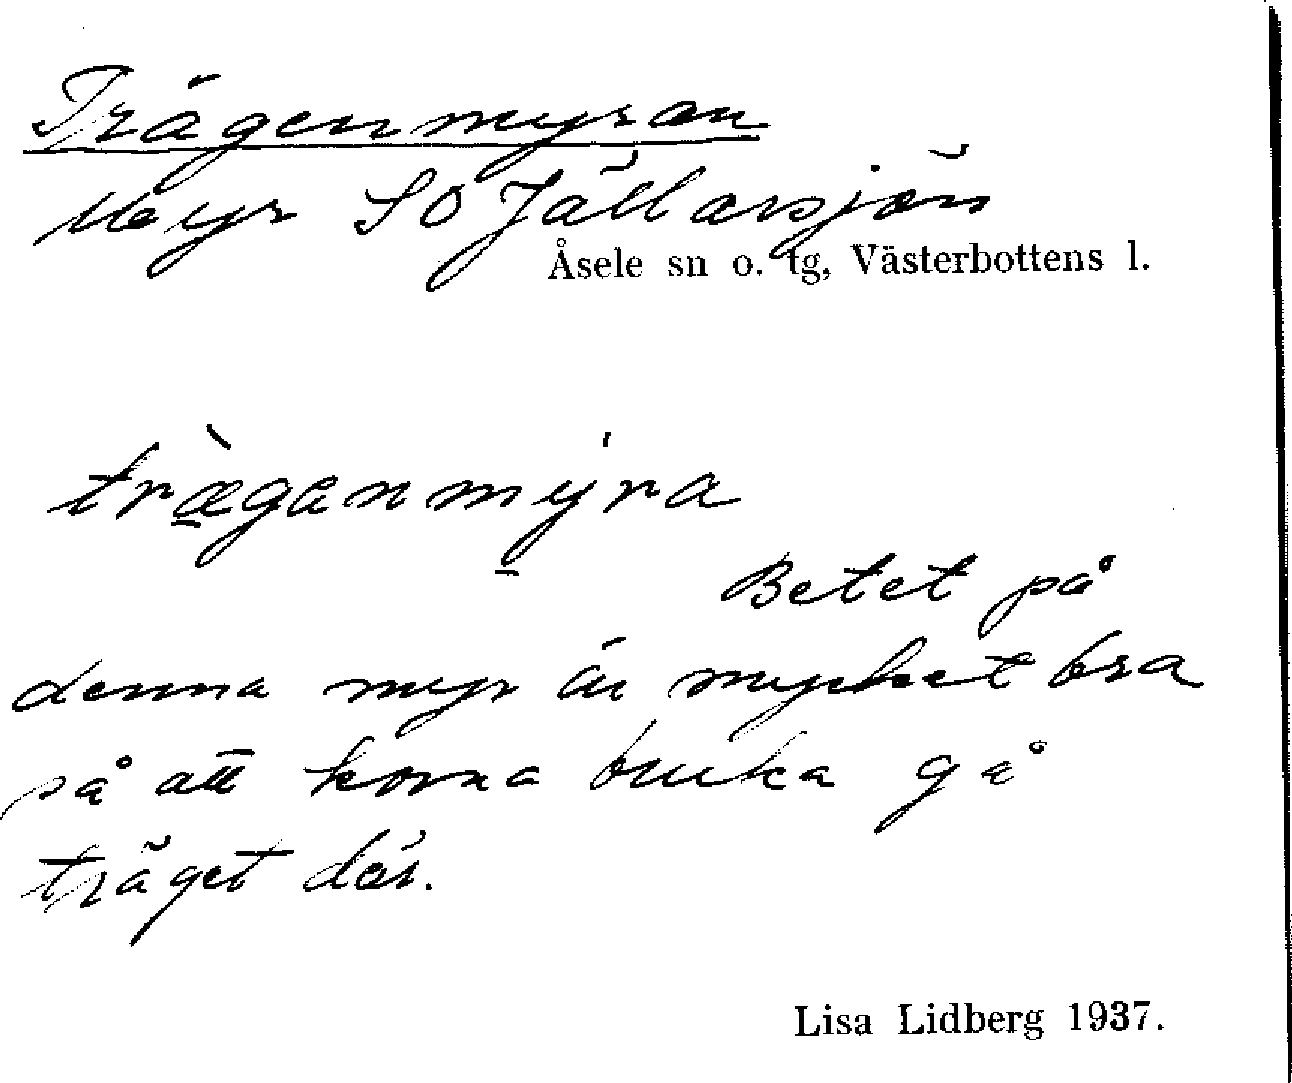 Trägenmyran
Myr SO Jällarsjön
Åsele sn o. tg, Västerbottens l.
træganmyra
Betet på
denna myr är mycket bra
så att korna bruka gå
träget där.
Lisa Lidberg 1937.